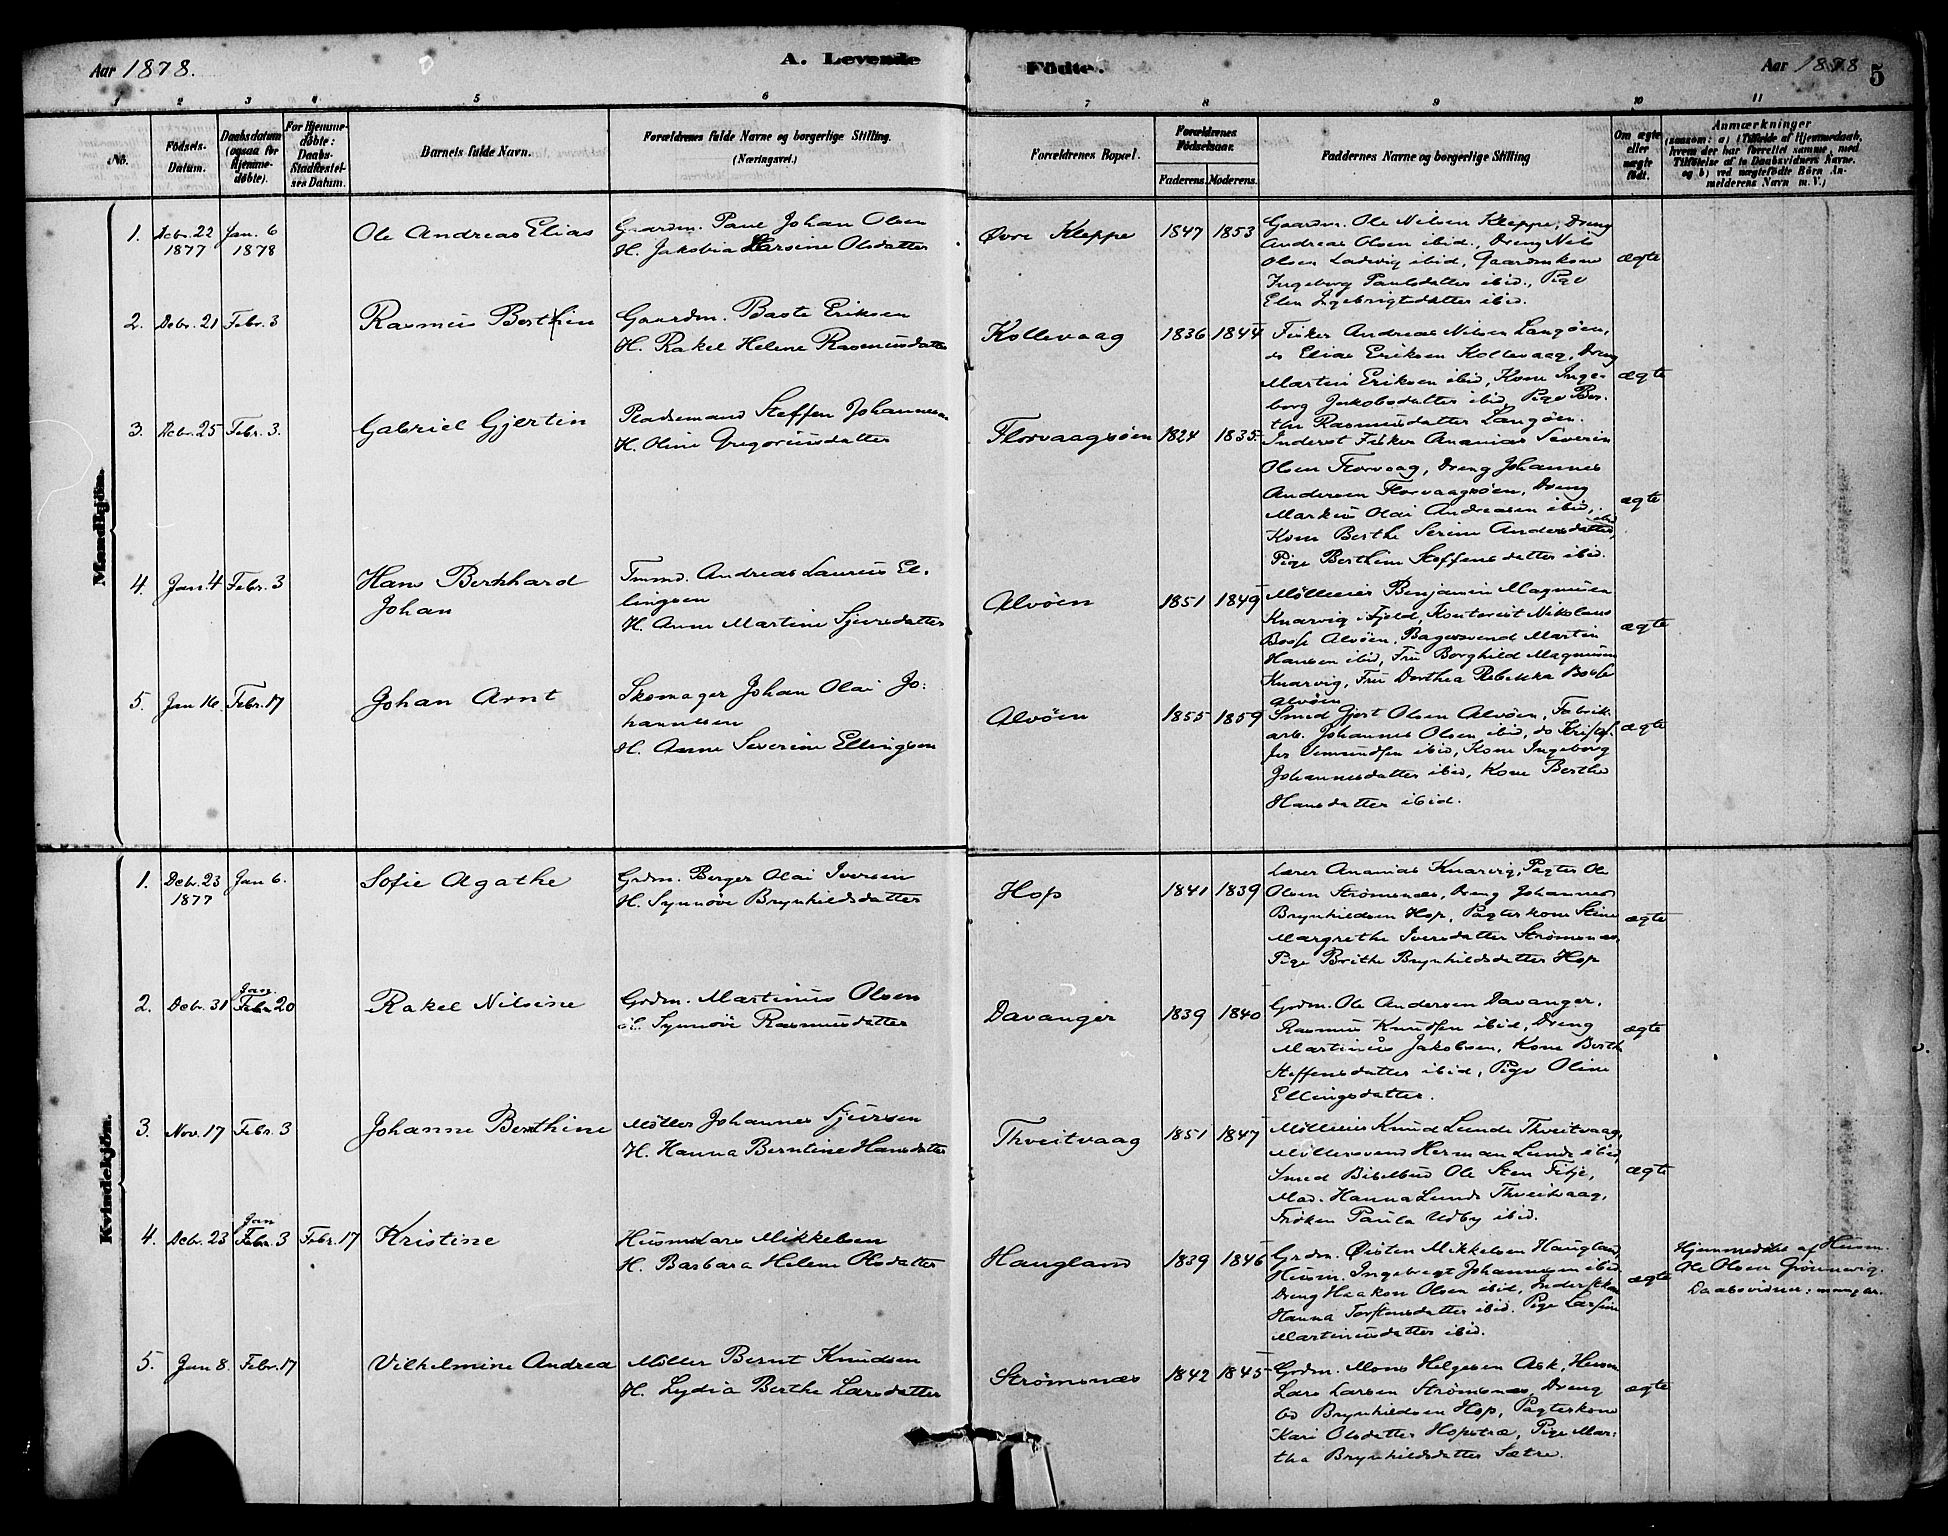 Aar 1878.
A. Levende
Födte.
Aar 1878
5
1 2 3 4 5 6 7 8 9 10 11
No.
Födsels-
Datum.
Daabsdatum
(ogsaa for
Hjemme-
döbte).
For Hjemme-
döbte:
Daabs-
Stadfæstel-
ses Datum.
Barnets fulde Navn.
Forældrenes fulde Navne og borgerlige Stilling.
(Næringsvei.)
Forældrenes Bopæl.
Forældrenes
Födselsaar.
Faderens. Moderens.
Faddernes Navne og borgerlige Stilling
Om ægte
eller
uægte
födt.
Anmærkninger
(saasom: a) i Tilfælde af Hjemmedaab,
hvem der har forrettet samme, med
Tilföielse af to Daabsvidners Navne,
og b) ved uægtefödte Börn An-
melderens Navn m. V.)
Mandkjön.
1.
Decbr. 22
1877
Jan. 6
1878
Ole Andreas Elias
Gaardm. Paul Johan Olsen
H. Jakobia Larsine Olsdatter
Øvre Kleppe
1847
1853
Gaardm. Ole Nilsen Kleppe, Dreng
Andreas Olsen ibid., Dreng Nils
Olsen Ladevig ibid, Gaardmkone
Ingeborg Paulsdatter ibid., Pige
Elen Ingebrigtsdatter ibid.
ægte
2.
Decbr. 21
Febr. 3
Rasmus Berthin
Gaardm. Baste Eriksen
H. Rakel Helene Rasmusdatter
Kollevaag
1836
1844
Fisker Andreas Nilsen Langøen,
do Elias Eriksen Kollevaag, Dreng
Martin Eriksen ibid, Kone Inge-
borg Jakobsdatter ibid, Pige Ber-
the Rasmusdatter Langøen.
ægte
3.
Decbr. 25
Febr. 3.
Gabriel Gjertin
Pladsmand Steffen Johannesen
H. Oline Gregoriusdatter
Florvaagsøen
1824
1835.
Inderst Fisker Ananias Severin
Olsen Florvaag, Dreng Johannes
Andersen Florvaagsøen, Dreng
Markus Olai Andreasen ibid,
Kone Berthe Serine Andersdatter, ibid
Pige Berthine Steffensdatter ibid.
ægte
4.
Jan. 4
Febr. 3
Hans Bernhard
Johan
Tmmd. Andreas Laurus El-
lingsen
H. Anne Martine Sjursdatter
Alvøen
1851
1849
Mølleeier Benjamin Magnusen
Knarvig i Fjeld, Kontorist Nikolaus
Boose Alvøen, Bagersvend Martin
Hansen ibid, Fru Borghild Magnusen
Knarvig, Fru Dorthea Rebekka Boose
Alvøen
ægte
5.
Jan 16.
Febr. 17
Johan Arnt
Skomager Johan Olai Jo-
hannesen
H. Anne Severine Ellingsen
Alvøen
1855
1859
Smed Gjert Olsen Alvøen, Fabrik-
arb. Johannes Olsen ibid, do Kristof-
fer Semundsen ibid, Kone Ingeborg
Johannesdatter ibid, Kone Berthe
Hansdatter ibid.
ægte
Kvindekjön.
1.
Decbr. 23
1877
Jan 6.
Sofie Agathe
Grdm. Berger Olai Iversen
H. Synnøve Brynhildsdatter
Hop
1841
1839
Lærer Ananias Knarvig, Pagter Ole
Olsen Strømsnes, Dreng Johannes
Brynhildsen Hop, Pagterkone Stine
Margrethe Iversdatter Strømsnes,
Pige Brithe Brynhildsdatter Hop
ægte
2.
Decbr. 31
Jan.
Febr. 20
Rakel Nilsine
Grdm. Martinus Olsen
H. Synnøve Rasmusdatter
Davanger
1839
1840
Grdm. Ole Andersen Davanger,
Rasmus Knudsen ibid, Dreng
Martinus Jakobsen, Kone Berthe
Steffensdatter ibid, Pige Oline
Ellingsdatter.
ægte
3.
Nov. 17
Febr. 3
Johanne Bernthine
Møller Johannes Sjursen
H. Hanna Berntine Hansdatter
Thveitvaag
1851
1847
Mølleeier Knud Lunde Thveitvaag,
Møllersvend Herman Lunde ibid,
Smed Bibelbud Ole Steen Fitje,
Mad. Hanna Lunde Thveitvaag,
Frøken Paula Udby ibid.
ægte
4.
Decbr. 23
Jan
Febr. 3
Febr. 17
Kristine
Husm. Lars Mikkelsen
H. Barbara Helene Olsdatter
Haugland
1839
1846
Grdm. Øisten Mikkelsen Haugland,
Husm. Ingebregt Johannesen ibid.
Dreng Haakon Olsen ibid, Inderstkone
Hanna Torstensdatter ibid. Pige Larsine
Martinusdatter ibid.
ægte
Hjemmedøbt af Husm.
Ole Olsen Grønnevig.
Daabsvidner: mangler.
5.
Jan 8.
Febr. 17
Vilhelmine Andrea
Møller Bernt Knudsen
H. Lydia Berthe Larsdatter
Strømsnes
1842
1845
Grdm. Mons Helgesen Ask, Husm
Lars Larsen Strømsnes, Dreng
Brynhildsen Hop, Pagterkone
Kari Olsdatter Hopstræ, Pige Mar-
tha Brynhildsdatter Sætre.
ægte